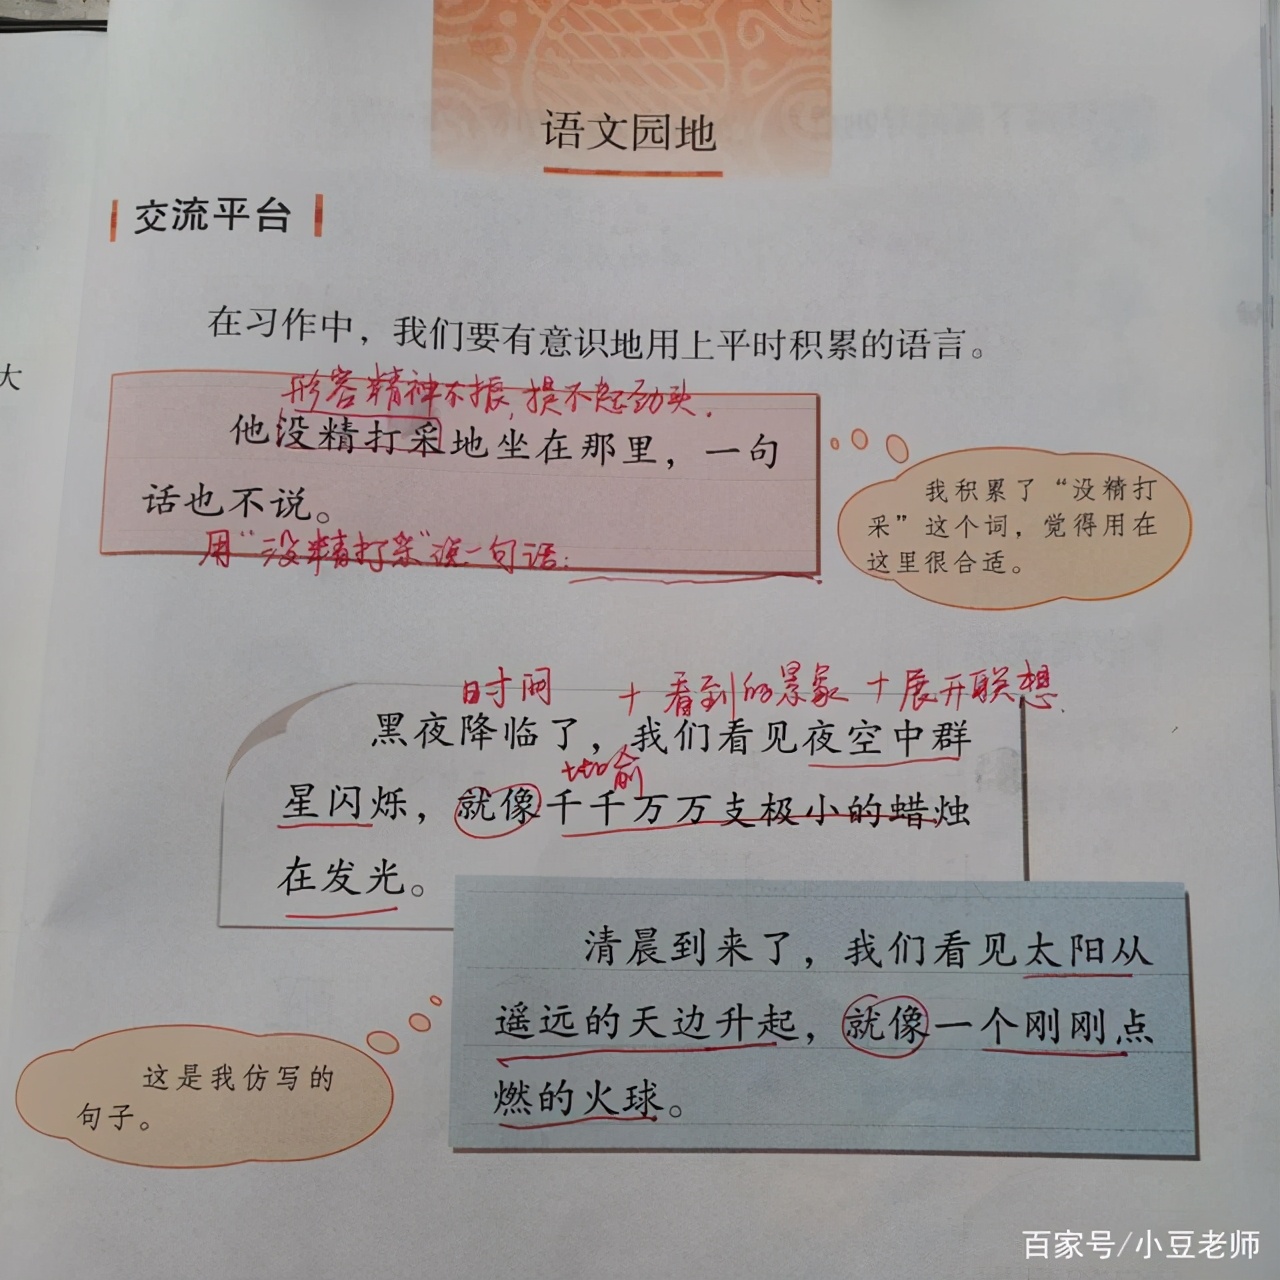 语文园地
交流平台
在习作中，我们要有意识地用上平时积累的语言。
形容精神不振，提不起劲头。
他没精打采地坐在那里，一句
话也不说。
用“没精打采”说一句话：
我积累了“没精打
采”这个词，觉得用在
这里很合适。
时间 + 看到的景象 + 展开联想
黑夜降临了，我们看见夜空中群
比喻
星闪烁，就像千千万万支极小的蜡烛
在发光。
清晨到来了，我们看见太阳从
遥远的天边升起，就像一个刚刚点
燃的火球。
这是我仿写的
句子。
大
百家号/小豆老师